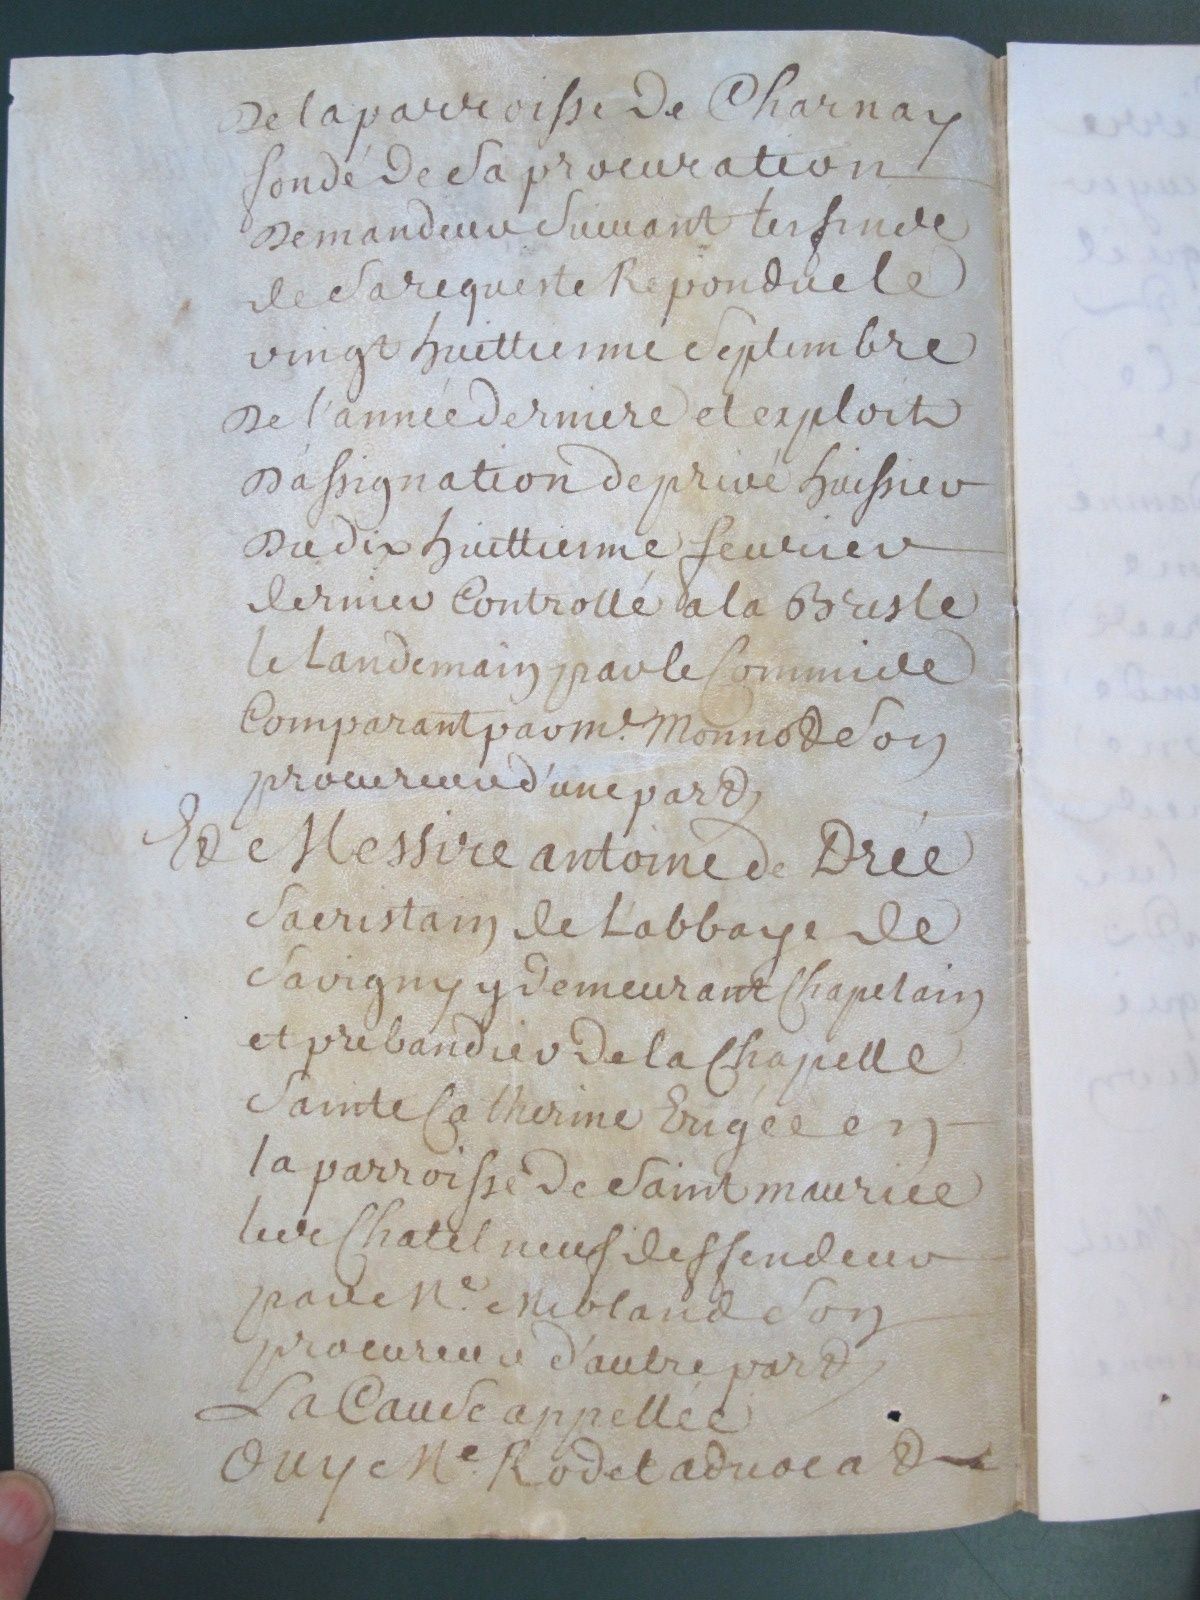 De la parroisse de Charnay
fondé de Sa procuration
Demandeur Suivant les fins de
de Sa requeste Reponduele
vingt huittieme Septembre
De l'année derniere et exploit
D'assignation de privé huissier
Du dix huittieme feuvrier
dernier Controllé a la Bresle
le Landemain par le Commis de
Comparant par me. Monnod Son
procureur d'une part
Et Messire antoine de Drée
Sacristain de L'abbaye de
Savigny y demeurant Chapelain
et prebandier de la Chapelle
Sainte Catherine Erigée en
la parroisse de Saint maurice
les Chatelneuf deffendeur
par Me. Merland Son
procureur d'autre part
La Cause appellée
Ouy Me. Rodet advocad